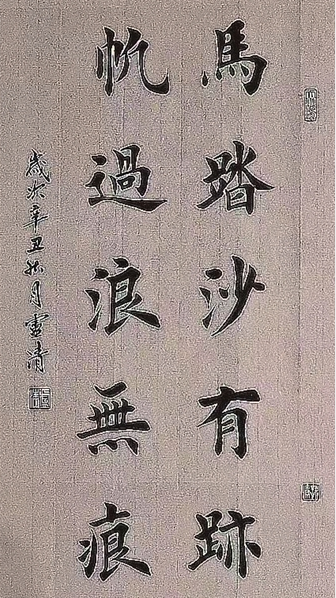 馬踏沙有跡
帆過浪無痕
歲次辛丑 月雲清